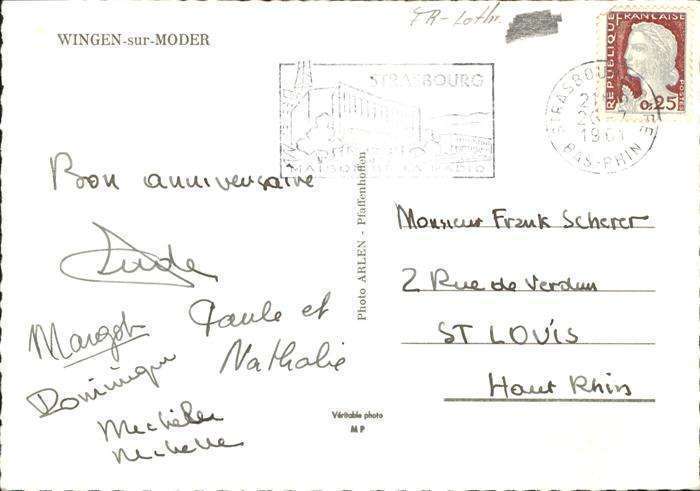 FR-Lothr.
WINGEN-sur-MODER
STRASBOURG
MAISON DE LA RADIO
STRASBOURG
1961
BAS-RHIN
RÉPUBLIQUE FRANÇAISE
POSTES
0,25
Bon anniversaire
Margot
Dominique
Paule et
Nathalie
Michèle
Michelle
Photo ARLEN - Pfaffenhoffen
Véritable photo
MP
Monsieur Frank Scherer
2 Rue de Verdun
ST LOUIS
Haut Rhin